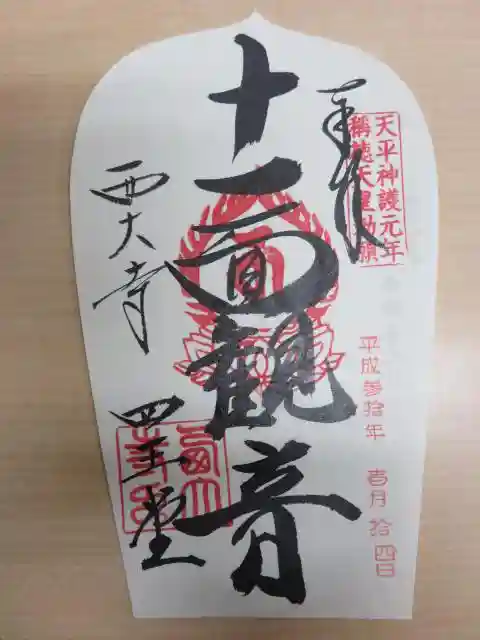 奉拝
天平神護元年
稱徳天皇勅願
平成参拾年 壱月 拾四日
十一面観音
西大寺
四王堂